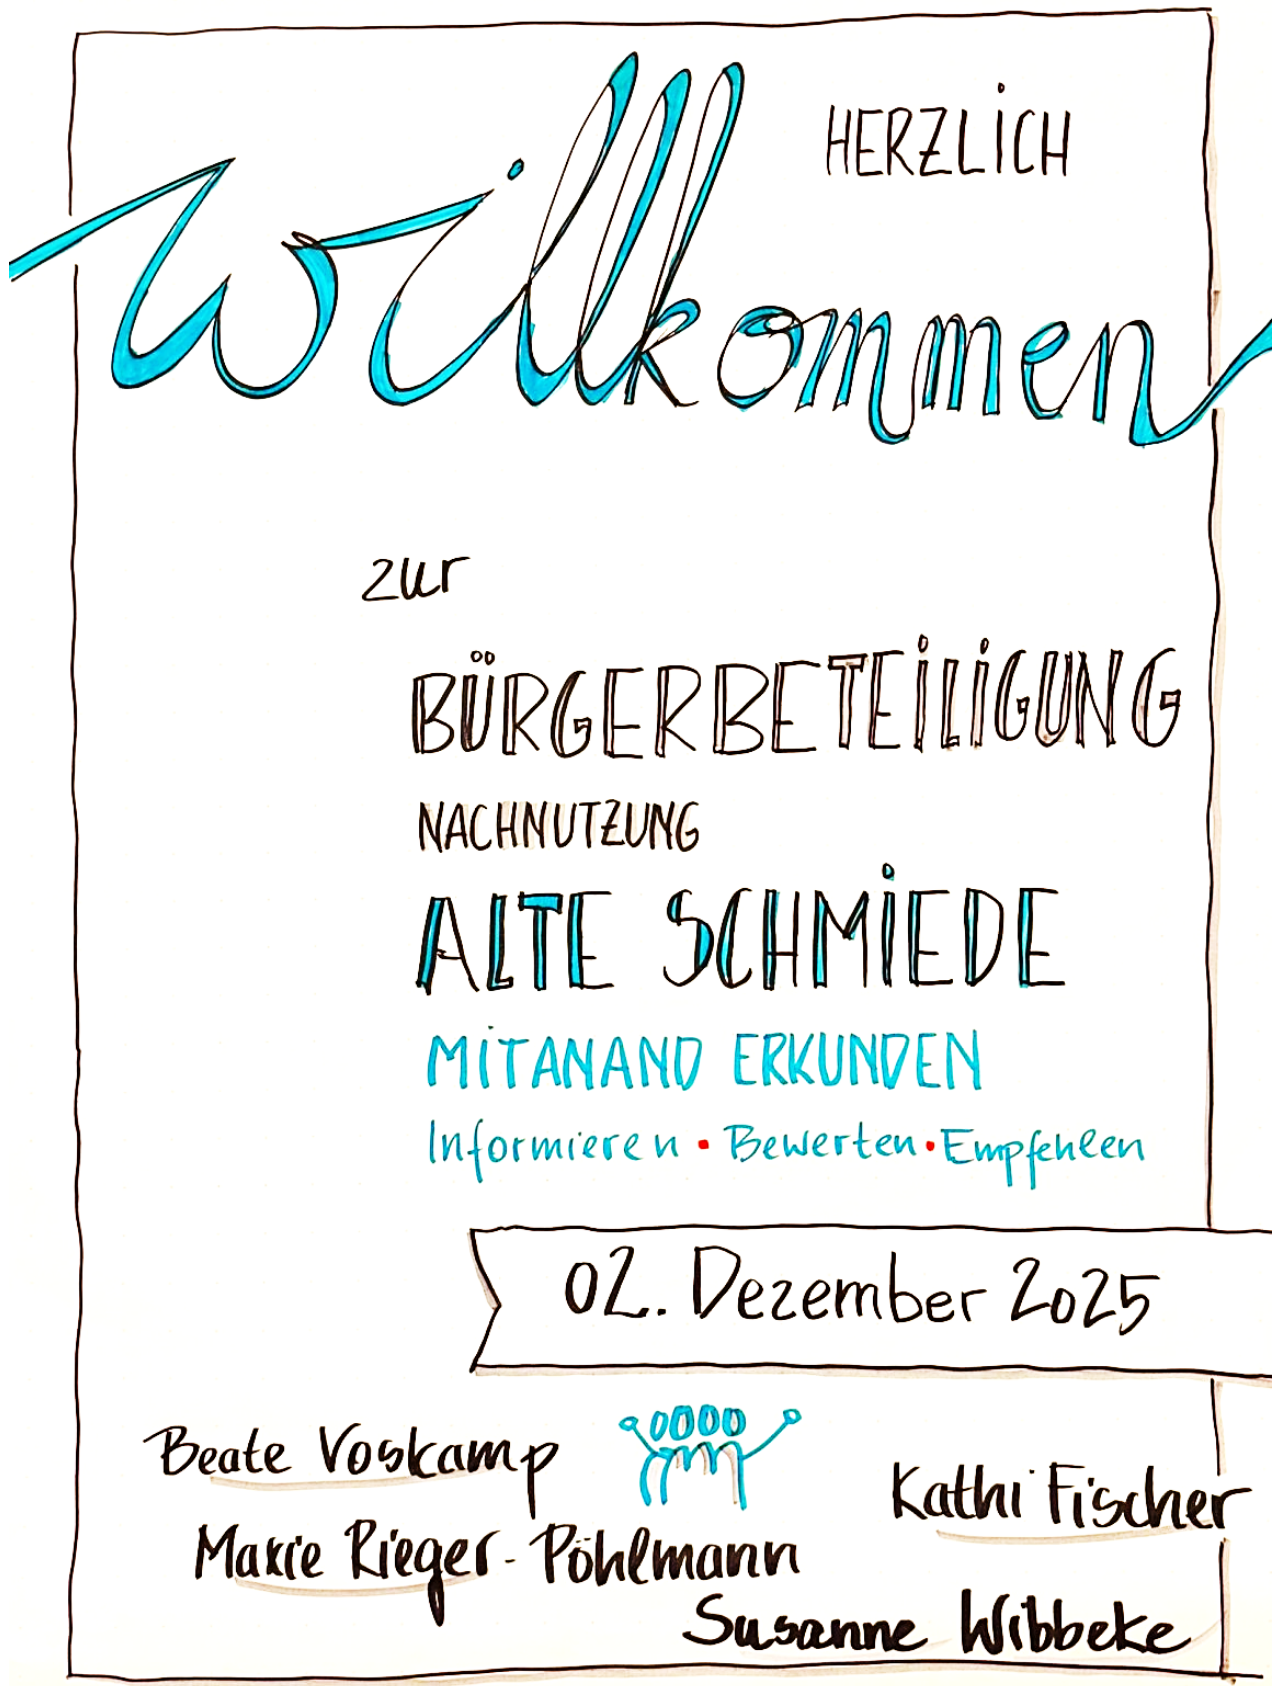 HERZLiCH
Willkommen
zur
BÜRGERBETEiLiGUNG
NACHNUTZUNG
ALTE SCHMiEDE
MiTANAND ERKUNDEN
Informieren • Bewerten • Empfehlen
02. Dezember 2025
Beate Voskamp
Kathi Fischer
Maxie Rieger-Pöhlmann
Susanne Wibbeke